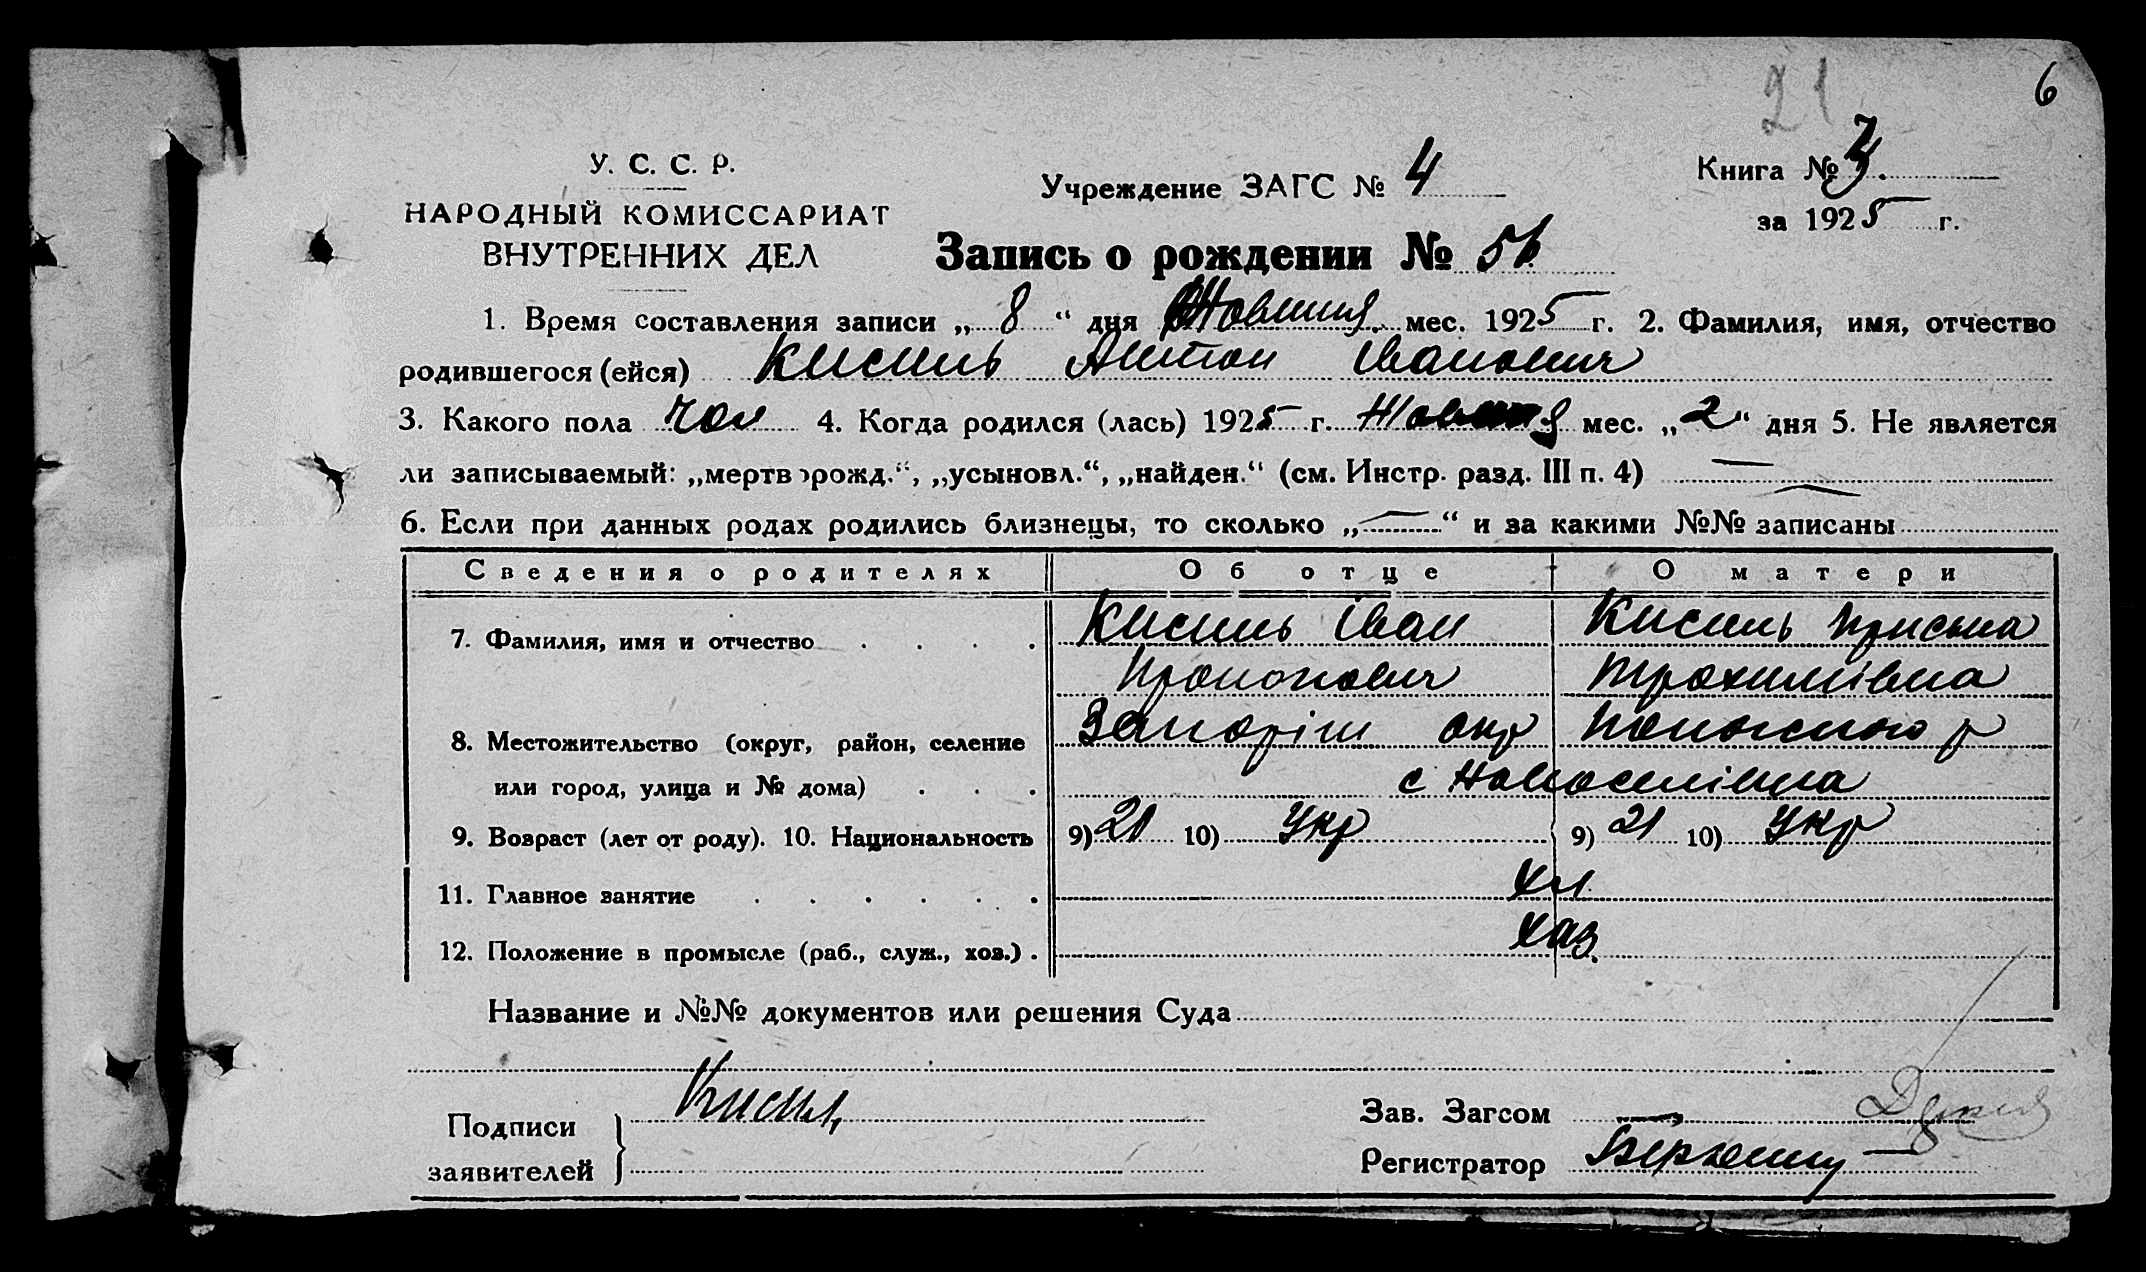 21
6
У. С. С. Р.
НАРОДНЫЙ КОМИССАРИАТ
ВНУТРЕННИХ ДЕЛ
Учреждение ЗАГС № 4
Книга №
за 1925 г.
Запись о рождении № 56
1. Время составления записи „ 8 “ дня Жовтня мес. 1925 г. 2. Фамилия, имя, отчество
родившегося (ейся) Кисиль Антон Іванович
3. Какого пола чол 4. Когда родился (лась) 1925 г. Жовтня мес. „ 2 “ дня 5. Не является
ли записываемый: „мертворожд.“, „усыновл.“, „найден.“ (см. Инстр. разд. III п. 4) —
6. Если при данных родах родились близнецы, то сколько „ — “ и за какими №№ записаны —
Сведения о родителях Об отце О матери
7. Фамилия, имя и отчество Кисиль Іван Кисиль Присьна
Прокопович Трохимівна
8. Местожительство (округ, район, селение Запоріж окр р
или город, улица и № дома) с Новоселівка
9. Возраст (лет от роду). 10. Национальность 9) 21 10) Укр 9) 21 10) Укр
11. Главное занятие Хл
12. Положение в промысле (раб., служ., хоз.) Хаз.
Название и №№ документов или решения Суда
Подписи
заявителей
Кисил
Зав. Загсом
Регистратор